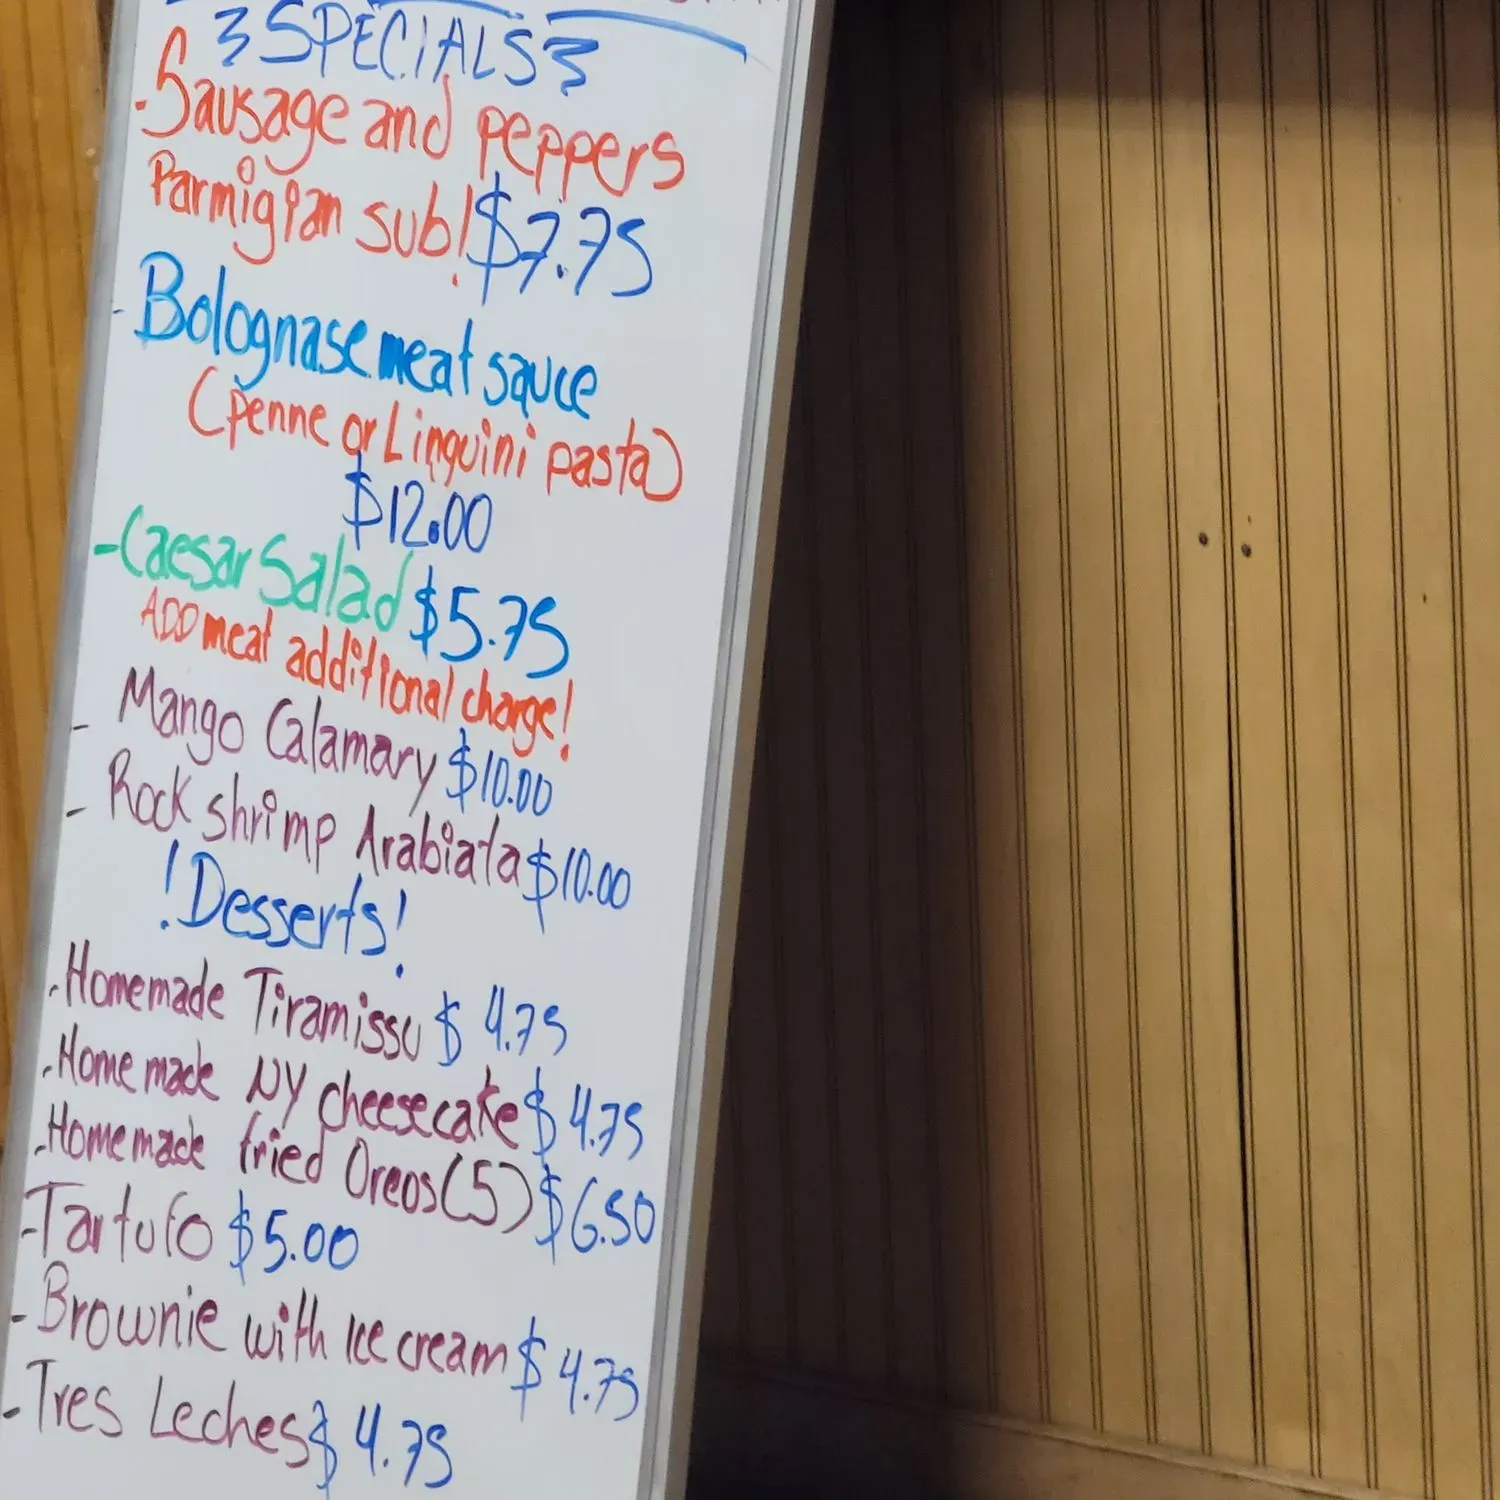 SPECIALS
-Sausage and peppers
Parmigian sub! $7.75
-Bolognase meat sauce
(penne or Linguini pasta)
$12.00
-Caesar Salad $5.75
ADD meat additional charge!
- Mango Calamary $10.00
- Rock shrimp Arabiata $10.00
!Desserts!
-Homemade Tiramissu $4.75
-Homemade NY cheesecake $4.75
-Homemade fried Oreos(5) $6.50
-Tartufo $5.00
-Brownie with Ice cream $4.75
-Tres Leches $4.75